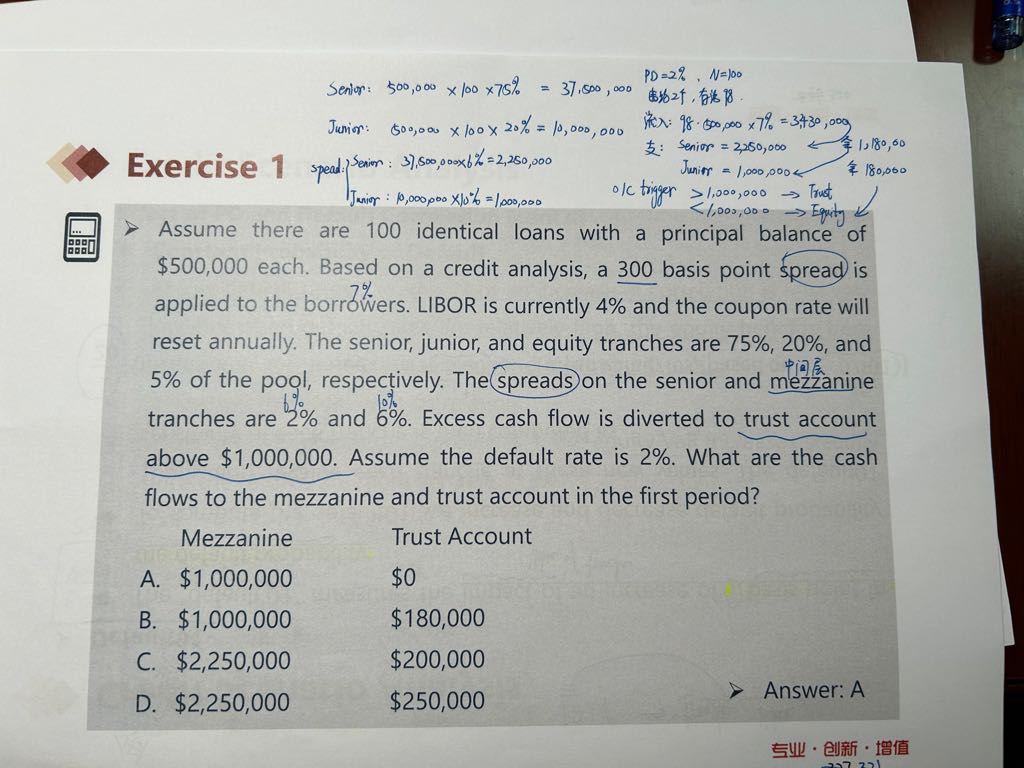 Senior: 500,000 × 100 × 75% = 37,500,000
PD = 2%, N=100
Junior: 500,000 × 100 × 20% = 10,000,000
收入: 98·500,000 × 7% = 3,430,000
支: Senior = 2,250,000
余 1,180,00
Junior = 1,000,000
余 180,000
Exercise 1
spead: Senior: 37,500,000×6% = 2,250,000
Junior: 10,000,000 ×10% = 1,000,000
o/c trigger >1,000,000 → Trust
<1,000,000 → Equity
➤ Assume there are 100 identical loans with a principal balance of
$500,000 each. Based on a credit analysis, a 300 basis point spread is
7%
applied to the borrowers. LIBOR is currently 4% and the coupon rate will
reset annually. The senior, junior, and equity tranches are 75%, 20%, and
中间层
5% of the pool, respectively. The spreads on the senior and mezzanine
6% 10%
tranches are 2% and 6%. Excess cash flow is diverted to trust account
above $1,000,000. Assume the default rate is 2%. What are the cash
flows to the mezzanine and trust account in the first period?
Mezzanine Trust Account
A. $1,000,000 $0
B. $1,000,000 $180,000
C. $2,250,000 $200,000
D. $2,250,000 $250,000
➤ Answer: A
专业·创新·增值